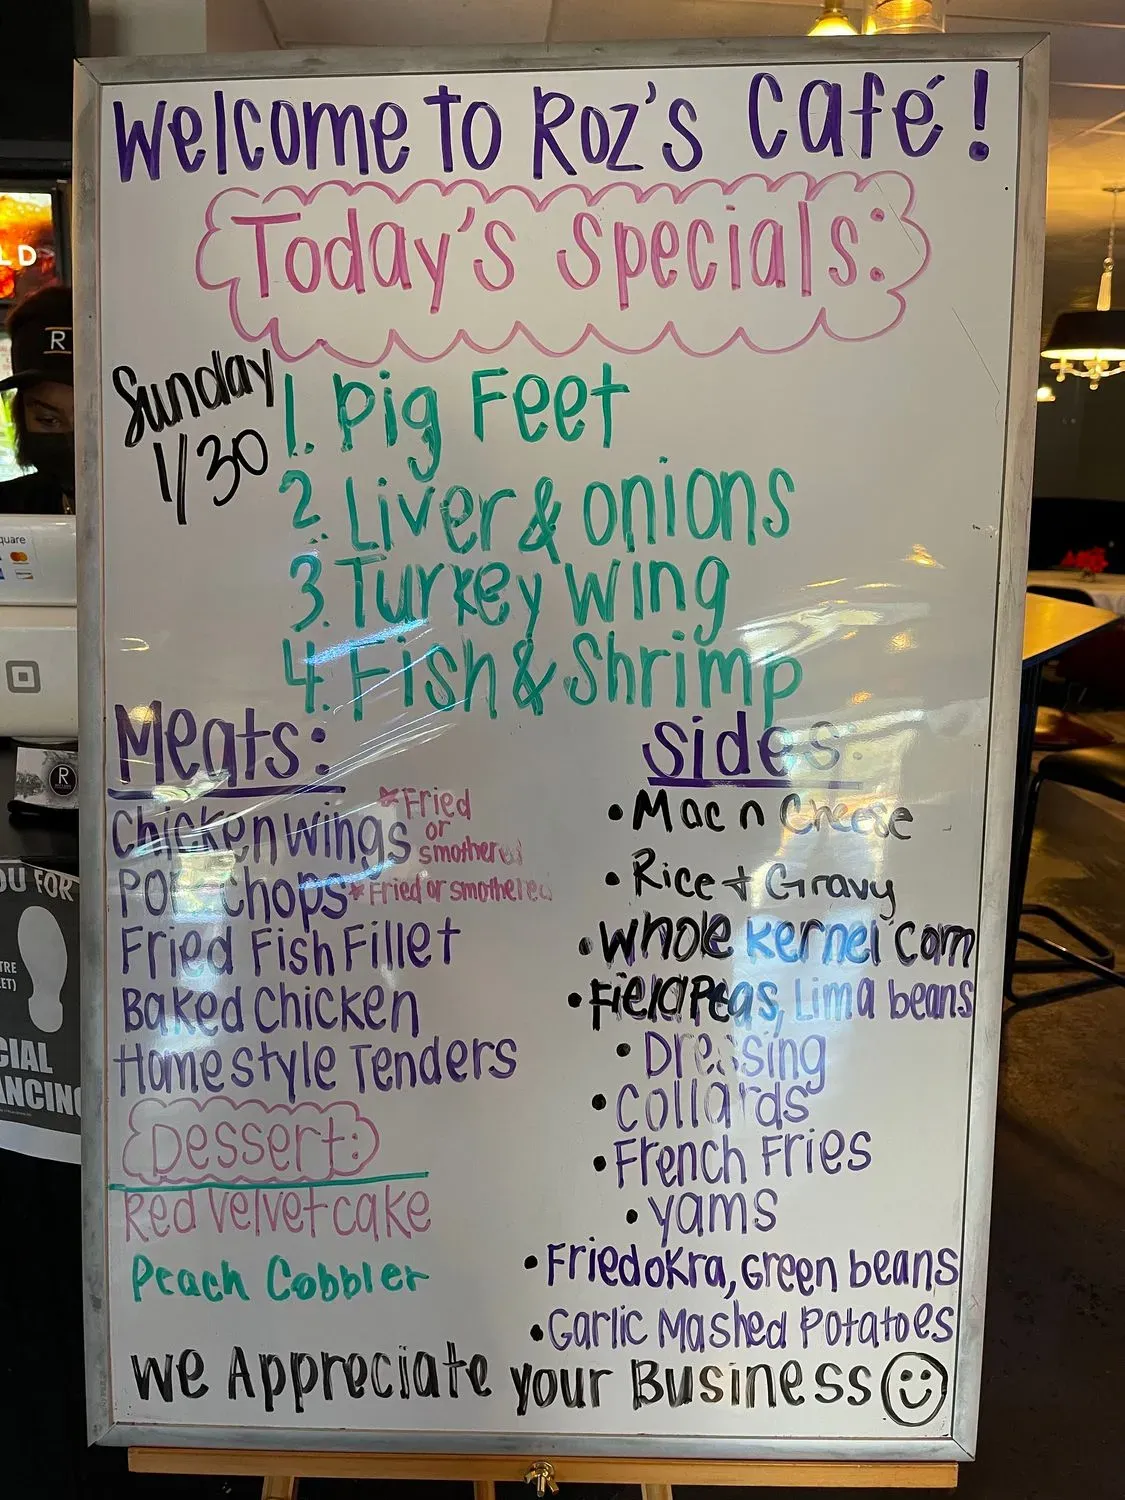 Welcome to Roz's Café!
Today's Specials:
Sunday
1/30
1. Pig Feet
2. Liver & onions
3. Turkey wing
4. Fish & Shrimp
Meats:
Chicken wings *Fried
or
smothered
Pork Chops *Fried or smothered
Fried Fish Fillet
Baked Chicken
Homestyle Tenders
Dessert:
Red Velvet cake
Peach Cobbler
Sides:
• Mac n Cheese
• Rice + Gravy
• Whole Kernel Corn
• Field Peas, Lima beans
• Dressing
• Collards
• French Fries
• yams
• Fried okra, Green beans
• Garlic Mashed Potatoes
We Appreciate your Business
LD
R
quare
R
OU FOR
TRE
ET)
CIAL
ANCING